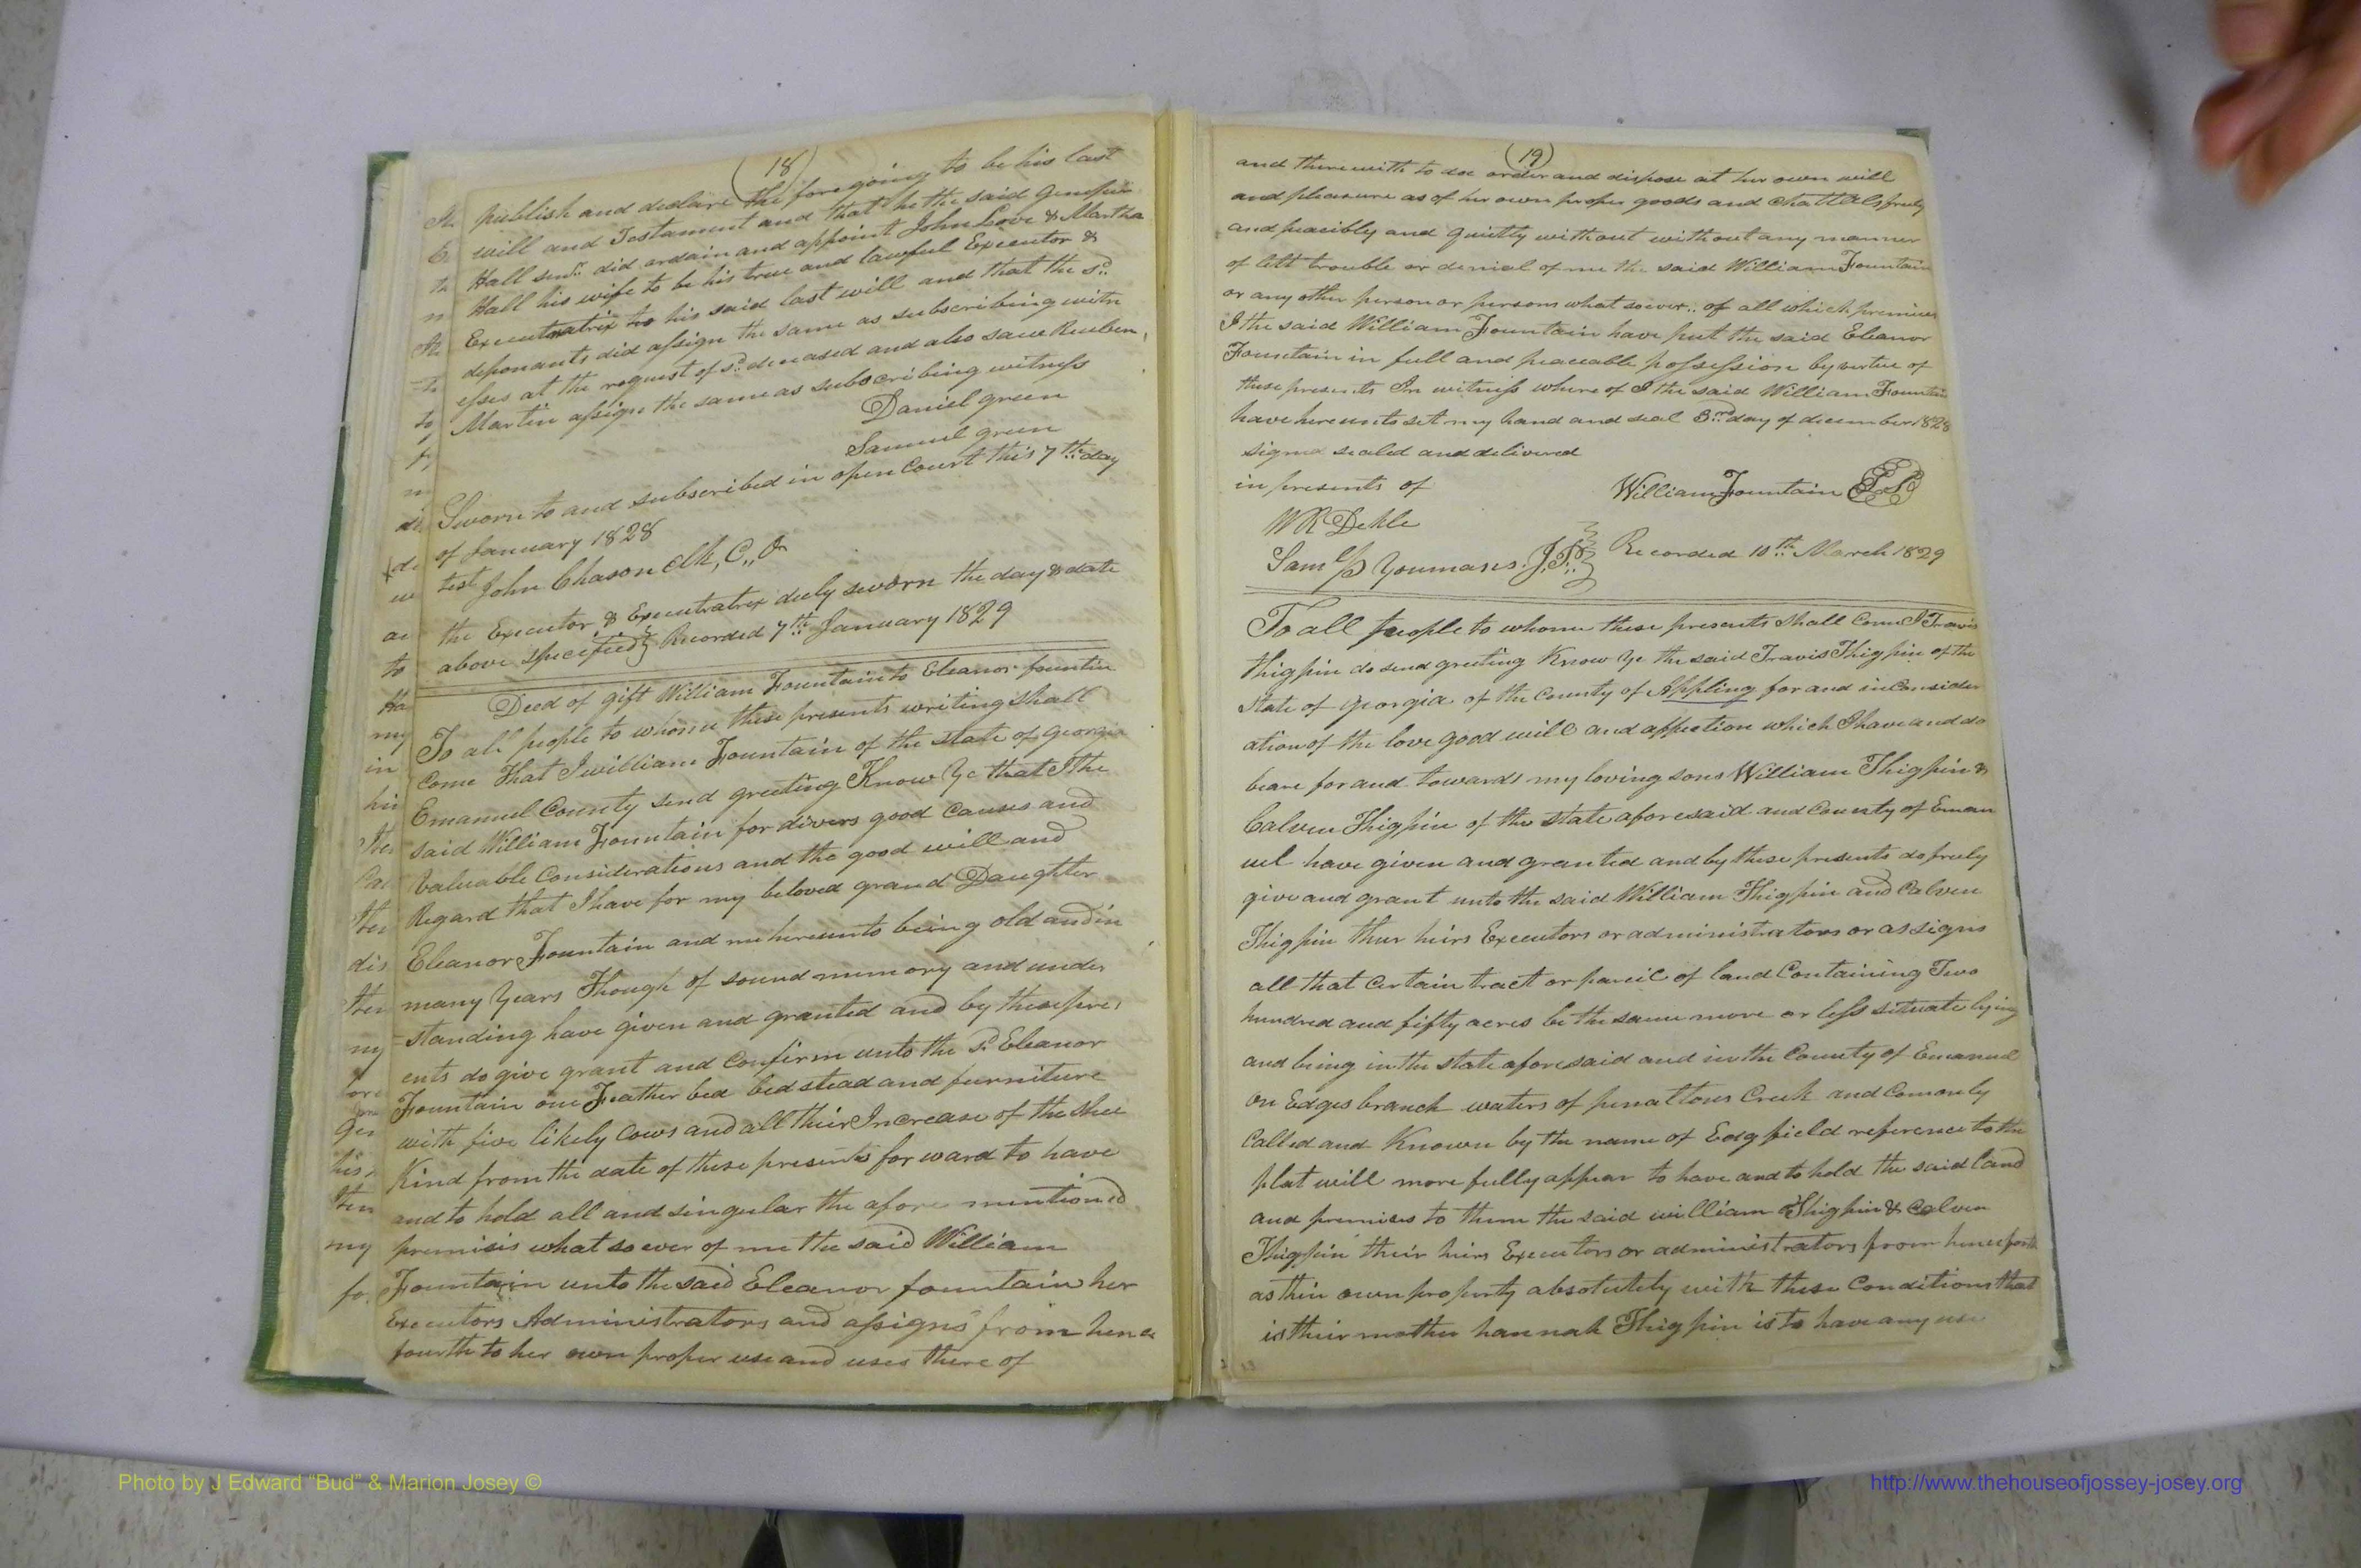 (18)
publish and declare the foregoing to be his last
will and Testament and that he the said
Hall senr. did ordain and appoint John Love & Martha
Hall his wife to be his true and lawful Executor &
Executratrix to his said last will and that the sd.
deponants did assign the same as subscribing witn
esses at the request of sd. deceased and also saw Reuben
Martin assign the same as subscribing witness
Daniel green
Samuel green
Sworn to and subscribed in open Court this 7th day
of January 1828
test John Chason Clk, C,, O
the Executor & Executratrix duly sworn the day & date
above specified } Recorded 7th January 1829
Deed of gift William Fountain to Eleanor fountin
To all people to whome these presents writing Shall
Come That I william Fountain of the state of georgia
Emanuel County send greeting Know Ye that I the
said William Fountain for divers good Causes and
Valuable Considerations and the good will and
Regard that I have for my beloved grand Daughter
Eleanor Fountain and me hereunto being old and in
many Years Though of sound memory and under
standing have given and granted and by these pres
ents do give grant and Confirm unto the sd. Eleanor
Fountain one Feather bed bedstead and furniture
with five likely Cows and all their Increase of the Shee
Kind from the date of these presents forward to have
and to hold all and singular the afore mentioned
premisis what so ever of me the said William
Fountain unto the said Eleanor fountain her
Executors Administrators and assigns from hence
fourth to her own proper use and uses there of
(19)
and therewith to doe order and dispose at her own will
and pleasure as of her own proper goods and Chattels freely
and peacibly and quietly without without any manner
of lett trouble or denial of me the said William Fountain
or any other person or persons what soever.. of all which premises
I the said William Fountain have put the said Eleanor
Fountain in full and peaceable possession by vertue of
these presents In witness where of I the said William Fountain
have hereunto set my hand and seal 3rd day of december 1828
signed sealed and delivered
in presents of
William Fountain
W R Dekle
Saml. Youmans. J.P. } Recorded 10th March 1829
To all people to whome these presents shall Come I Travis
Thigpin do send greeting Know Ye the said Travis Thigpin of the
State of georgia of the County of Appling for and in Consider
ation of the love good will and affection which I have and do
beare for and towards my loving sons William Thigpin &
Calven Thigpin of the state aforesaid and County of Eman
uel have given and granted and by these presents do freely
give and grant unto the said William Thigpin and Calven
Thigpin ther heirs Executors or administrators or assigns
all that Certain tract or parcil of land Containing Two
hundred and fifty acres be the same more or less situate lying
and being in the state aforesaid and in the County of Emanuel
on Edges branch waters of penattous Creek and Comonly
Called and Known by the name of Edgfield reference to the
plat will more fully appear to have and to hold the said land
and premises to them the said william Thigpin & Calven
Thigpin their heirs Executors or administrators from henceforth
as thin own property absolutely with these Conditions that
is their mother hannah Thigpin is to have any use
Photo by J Edward “Bud” & Marion Josey ©
http://www.thehouseofjossey-josey.org